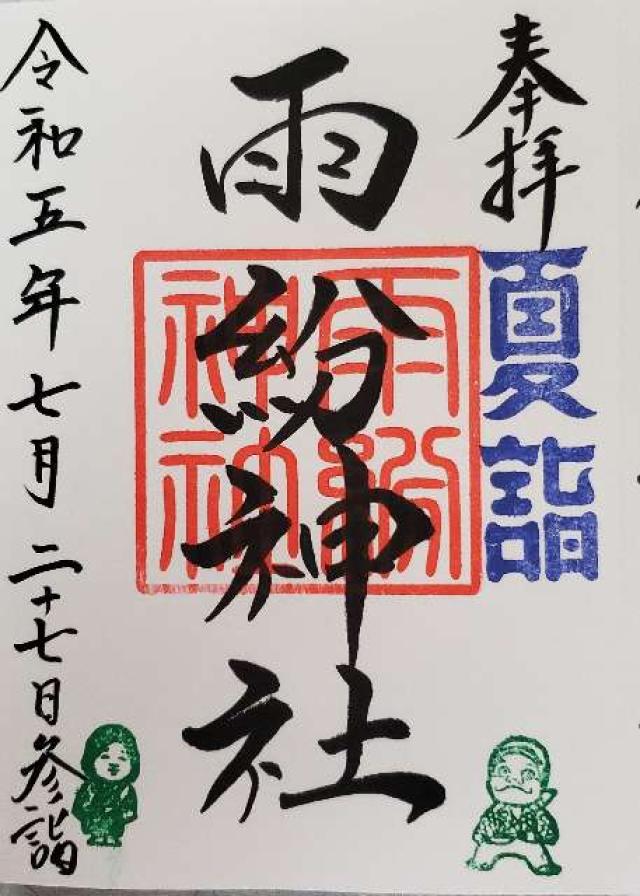 奉拝
夏詣
雨紛神社
雨紛
神社
令和五年七月二十七日参詣